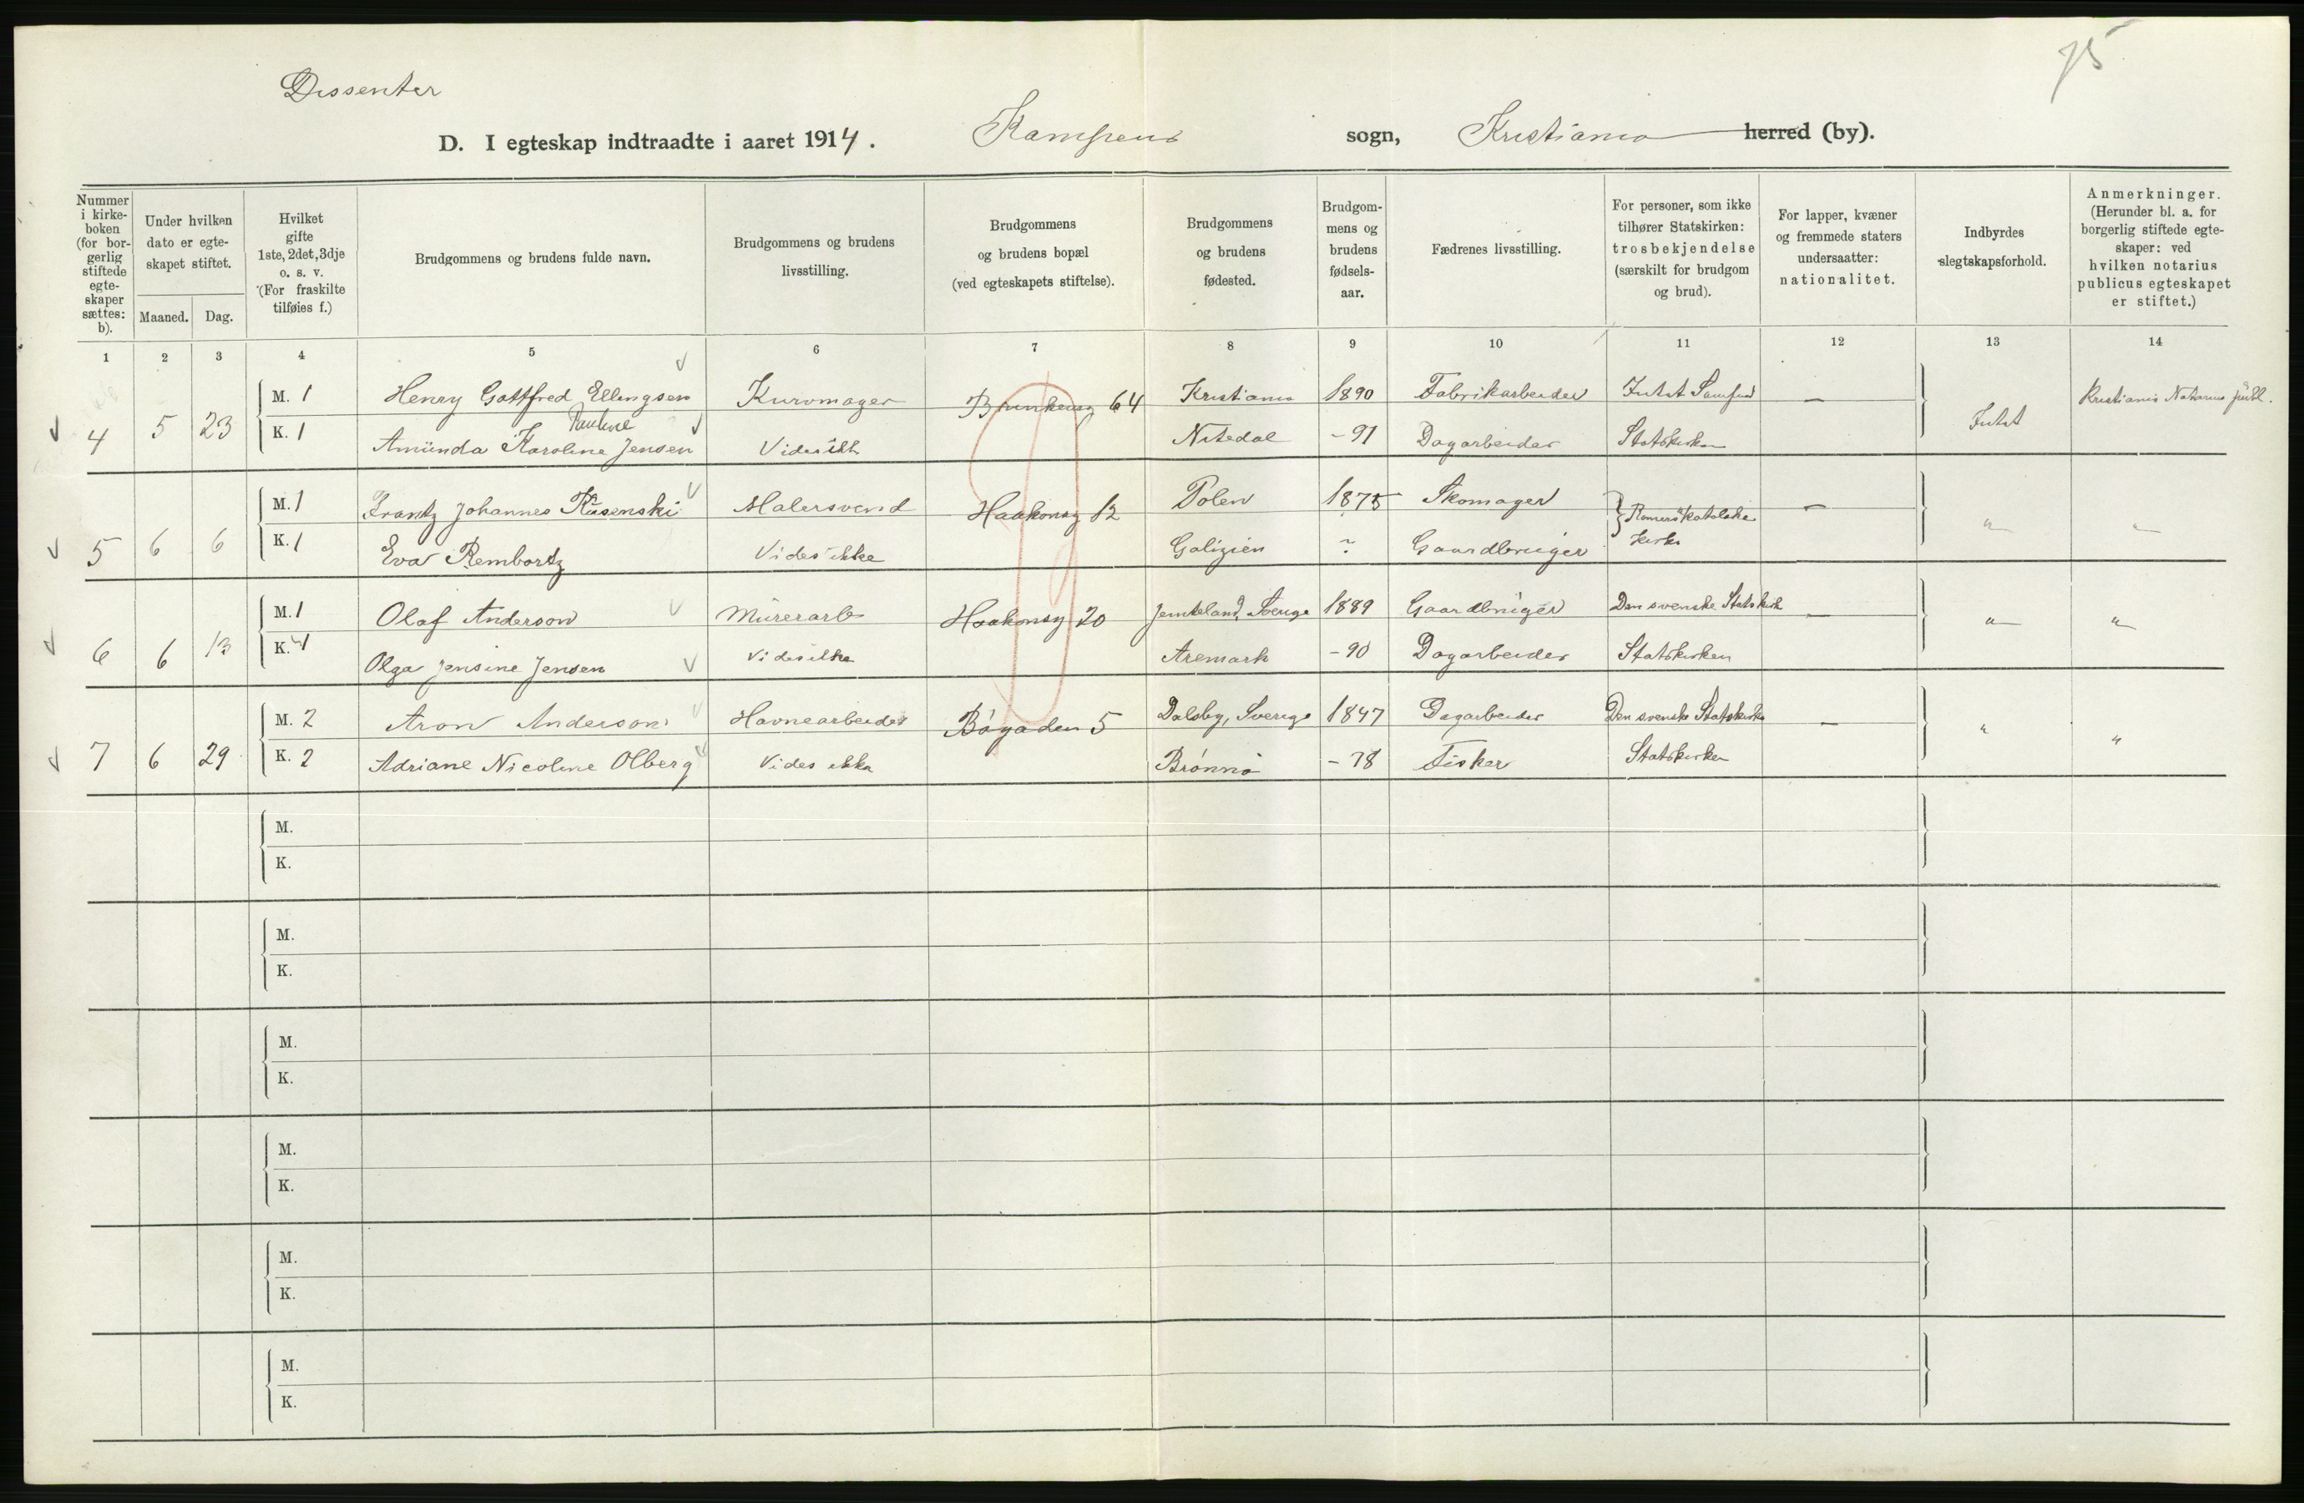 75
Dissenter
D. I egteskap indtraadte i aaret 1914. Kampens sogn, Kristiania herred (by).
Nummer i kirkeboken (for borgerlig stiftede egteskaper sættes: b). | Under hvilken dato er egteskapet stiftet. Maaned. Dag. | Hvilket gifte 1ste, 2det, 3dje o. s. v. (For fraskilte tilføies f.) | Brudgommens og brudens fulde navn. | Brudgommens og brudens livsstilling. | Brudgommens og brudens bopæl (ved egteskapets stiftelse). | Brudgommens og brudens fødested. | Brudgommens og brudens fødselsaar. | Fædrenes livsstilling. | For personer, som ikke tilhører Statskirken: trosbekjendelse (særskilt for brudgom og brud). | For lapper, kvæner og fremmede staters undersaatter: nationalitet. | Indbyrdes slegtskapsforhold. | Anmerkninger. (Herunder bl. a. for borgerlig stiftede egteskaper: ved hvilken notarius publicus egteskapet er stiftet.)
1 2 3 4 5 6 7 8 9 10 11 12 13 14
M. 1 Henry Gottfred Ellingsen Kurvmager 64 Kristiania 1890 Fabrikarbeider Intet Samfund — Kristiania Notarius publ.
Pauline
4 5 23 K. 1 Amünda Karoline Jensen Vides ikke Nitedal - 91 Dagarbeider Statskirken Intet
M. 1 Frantz Johannes Kusenski Malersvend Haakonsg 12 Polen 1875 Skomager Romersk katolske —
5 6 6 K. 1 Eva Rembortz Vides ikke Galizien ? Gaardbruger kirke " "
M. 1 Olaf Anderson Mürerarb Haakonsg 20 Jemteland, Sverige 1889 Gaardbruger Den svenske Statskirke —
6 6 13 K. 1 Olga Jensine Jensen Vides ikke Aremark - 90 Dagarbeider Statskirken " "
M. 2 Aron Anderson Havnearbeider Bøgaden 5 Dalsby, Sverige 1847 Dagarbeider Den svenske Statskirke —
7 6 29 K. 2 Adriane Nicoline Olberg Vides ikke Brønnø - 78 Fisker Statskirken " "
M.
K.
M.
K.
M.
K.
M.
K.
M.
K.
M.
K.